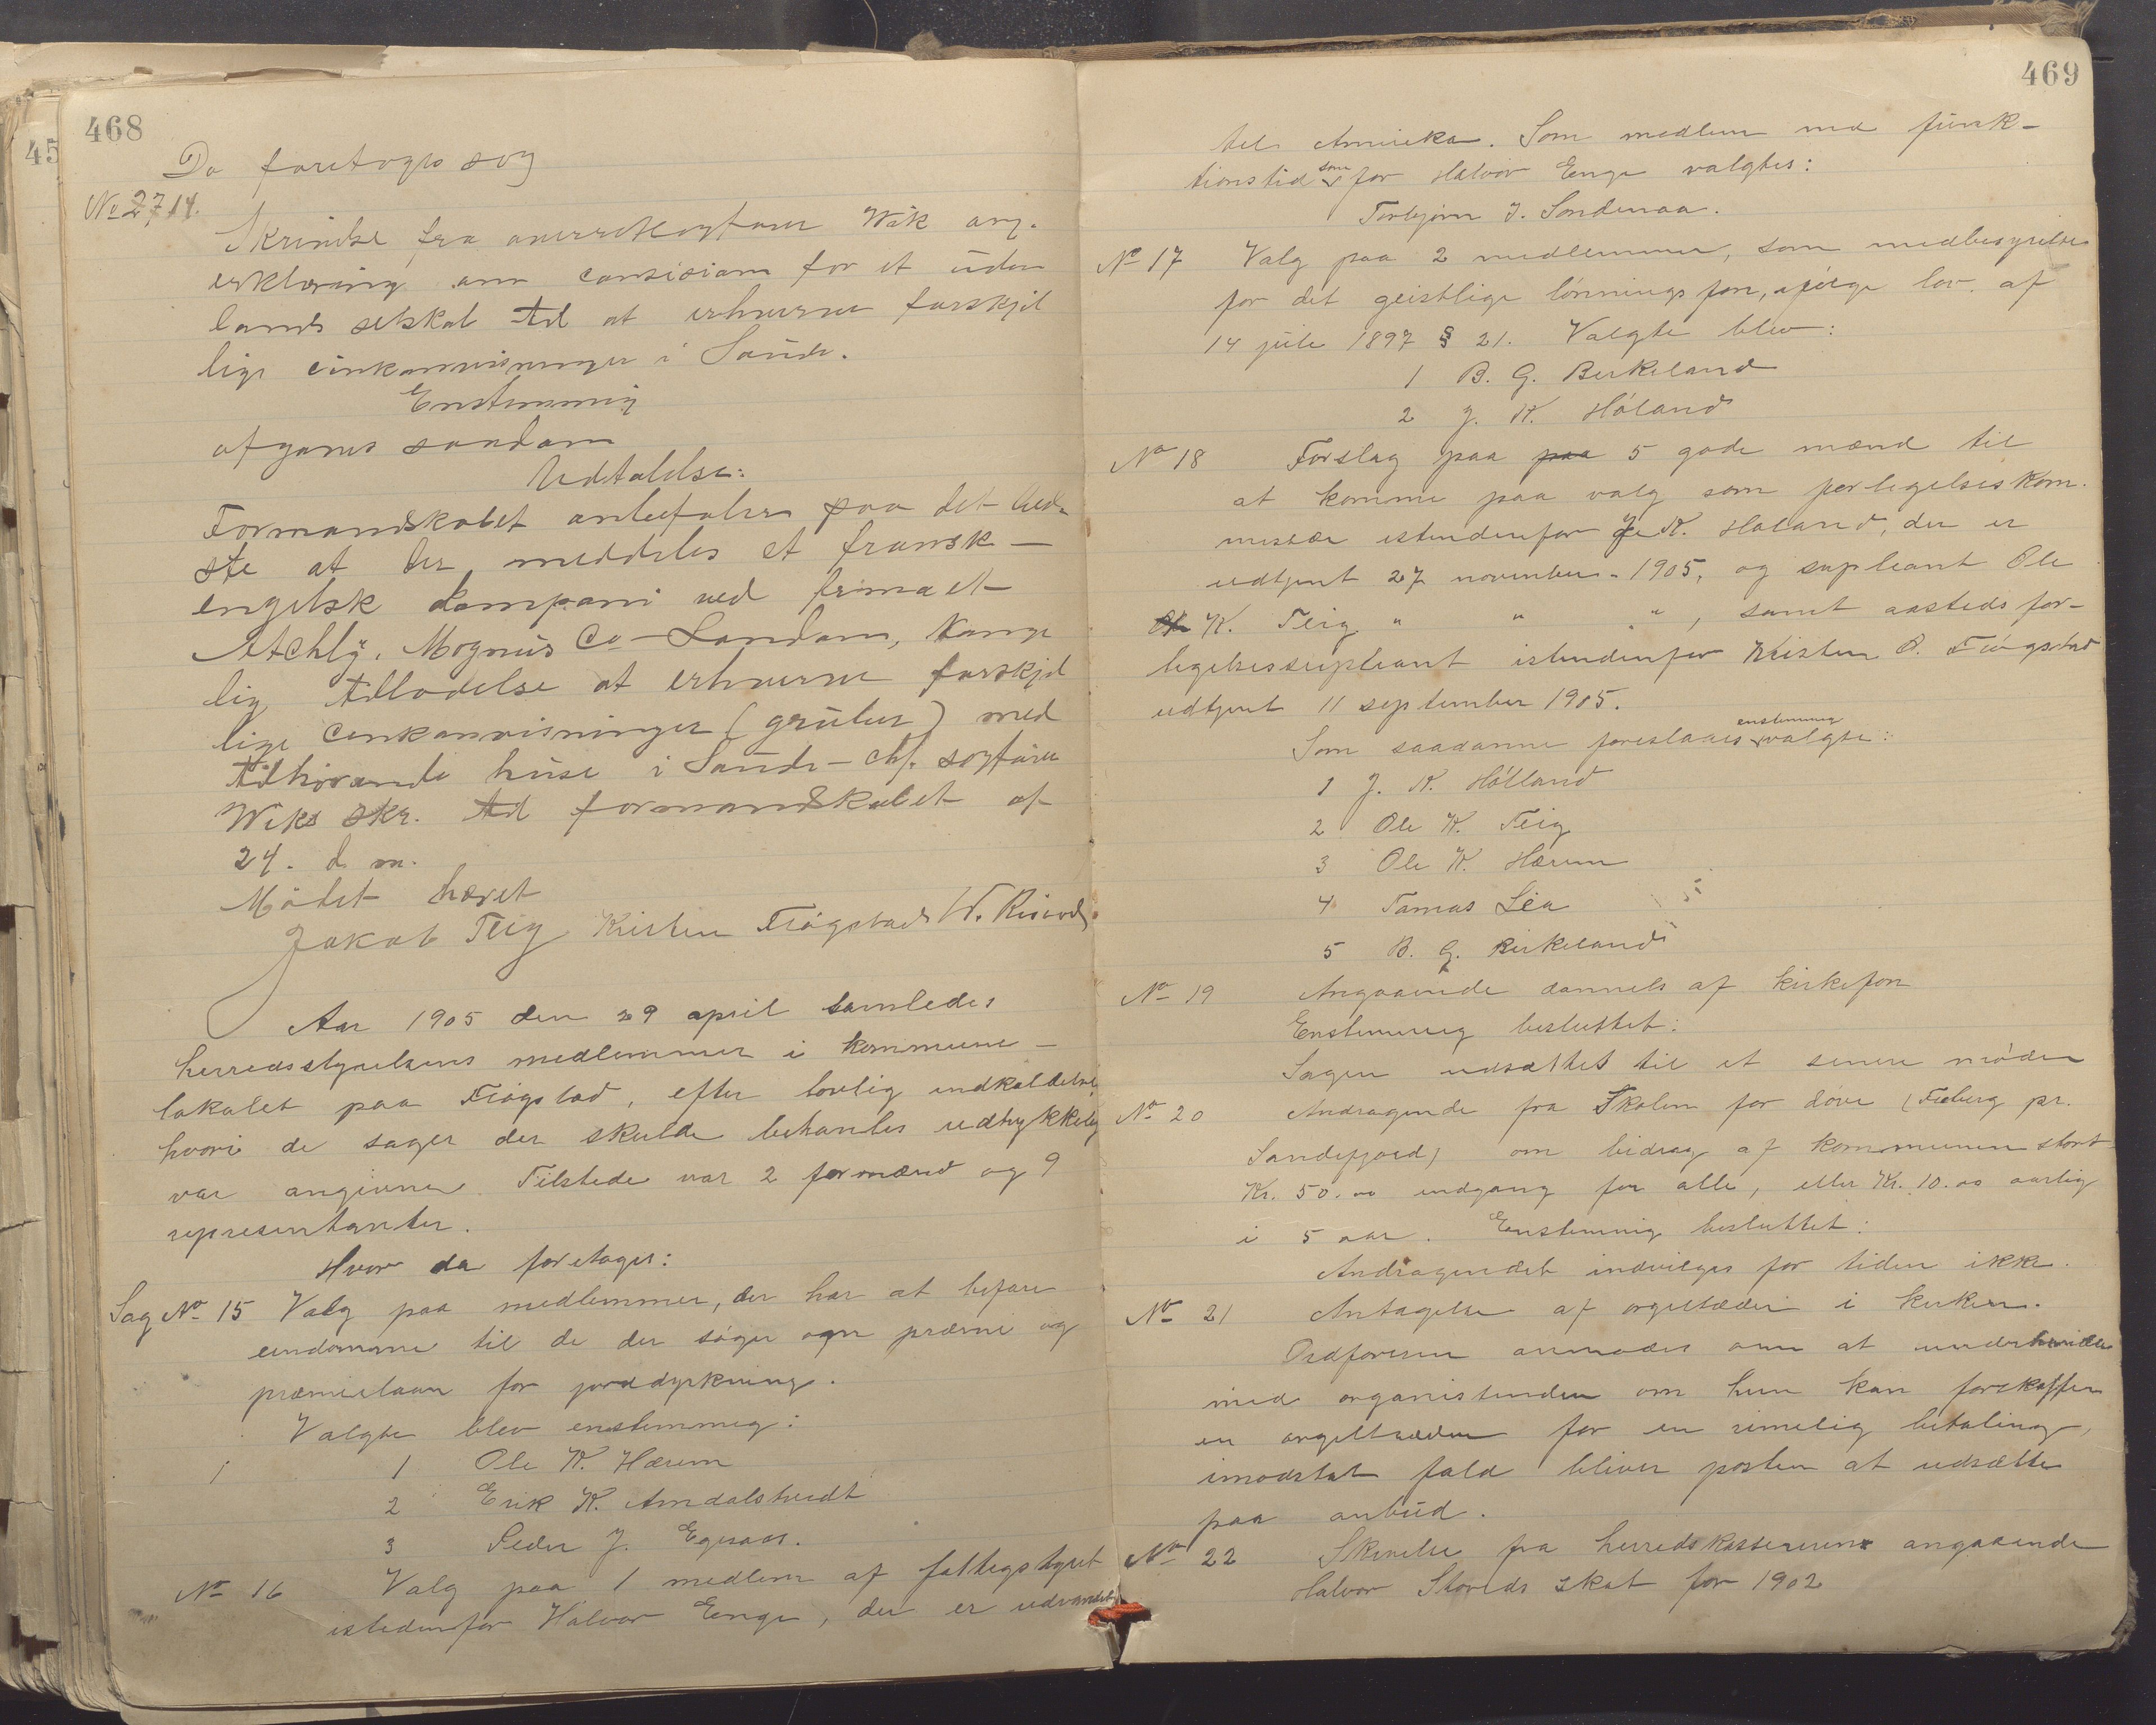 468
Da foretoges sag
No 27, 14.
Skrivelse fra overretssagfører Wiik ang.
erklæring om consision for et uden
lands selskab til at erhverve forskjel
lige cinkanvisninger i Saude.
Enstemmig
afgaves saadan
Udtalelse:
Formandskabet anbefaler paa det bed-
ste at der meddeles et fransk-
engelsk kompani ved firmaet
Atchly, Magnus Co-London, Konge
lig tilladelse at erhverve forskjel
lige cinkanvisninger (gruber) med
tilhørende huse i Saude - chf. sagfører
Wiks skr. til formandskabet af
24. d. m.
Mødet hævet
Jakob Teig Kristen Fiøgstad W. Risvold
Aar 1905 den 29 april samledes
herredsstyrelsens medlemmer i kommune-
lokalet paa Fiøgstad, efter lovlig indkaldelse,
hvori de sager der skulde behanles udtrykkelig
var angivne. Tilstede var 2 formænd og 9
representanter.
Hvor da foretages:
Sag No 15 Valg paa medlemmer, der har at befare
eiendomene til de der søger om præmie og
præmielaan for jorddyrkning.
Valgte blev enstemmig:
1 Ole K. Hærem
2 Erik K. Amdalstvedt
3 Peder J. Egeraas.
No 16 Valg paa 1 medlem af fattigstyret
istedenfor Halvor Enge, der er udvandet
469
til Amerika. Som medlem med funk-
tionstid som for Halvor Enge valgtes:
Torbjørn J. Sondenaa.
No 17 Valg paa 2 medlemmer, som medbesyrelse
for det geistlige lønnings fon, ifølge lov. af
14 juli 1897 § 21. Valgte blev:
1 B. G. Birkeland
2 J. K. Høland
No 18 Forslag paa paa 5 gode mænd til
at komme paa valg som forligelseskom.
missær istendenfor J. K. Høland, der er
udtjent 27 november 1905, og supleant Ole
Ole K. Teig " " ", samt aasteds for-
ligelsessupleant istendenfor Kristen O. Fiøgstad
udtjent 11 september 1905.
Som saadanne foreslaaes enstemmig valgte:
1 J. K. Hølland
2 Ole K. Teig
3 Ole K. Hærem
4 Tomas Lia
5 B. G. Birkeland
No 19 Angaaende dannels af kirkefon
Enstemmig besluttet:
Sagen udsættet til et senere møde
No 20 Andragende fra Skolen for døve (Fieberg pr.
Sandefjord) om bidrag af kommunen stort
Kr. 50.00 engang for alle, eller Kr. 10.00 aarlig
i 5 aar. Enstemmig besluttet:
Andragendet indvilges for tiden ikke.
No 21 Antagelse af orgeltræder i kirken.
Ordføreren anmodes om at underhandle
med organistinden om hun kan forskaffe
en orgeltræder for en rimelig betaling,
imodsat fald bliver posten at udsætte
paa anbud.
No 22 Skrivelse fra herredskassereren angaaende
Halvor Storeds skat for 1902